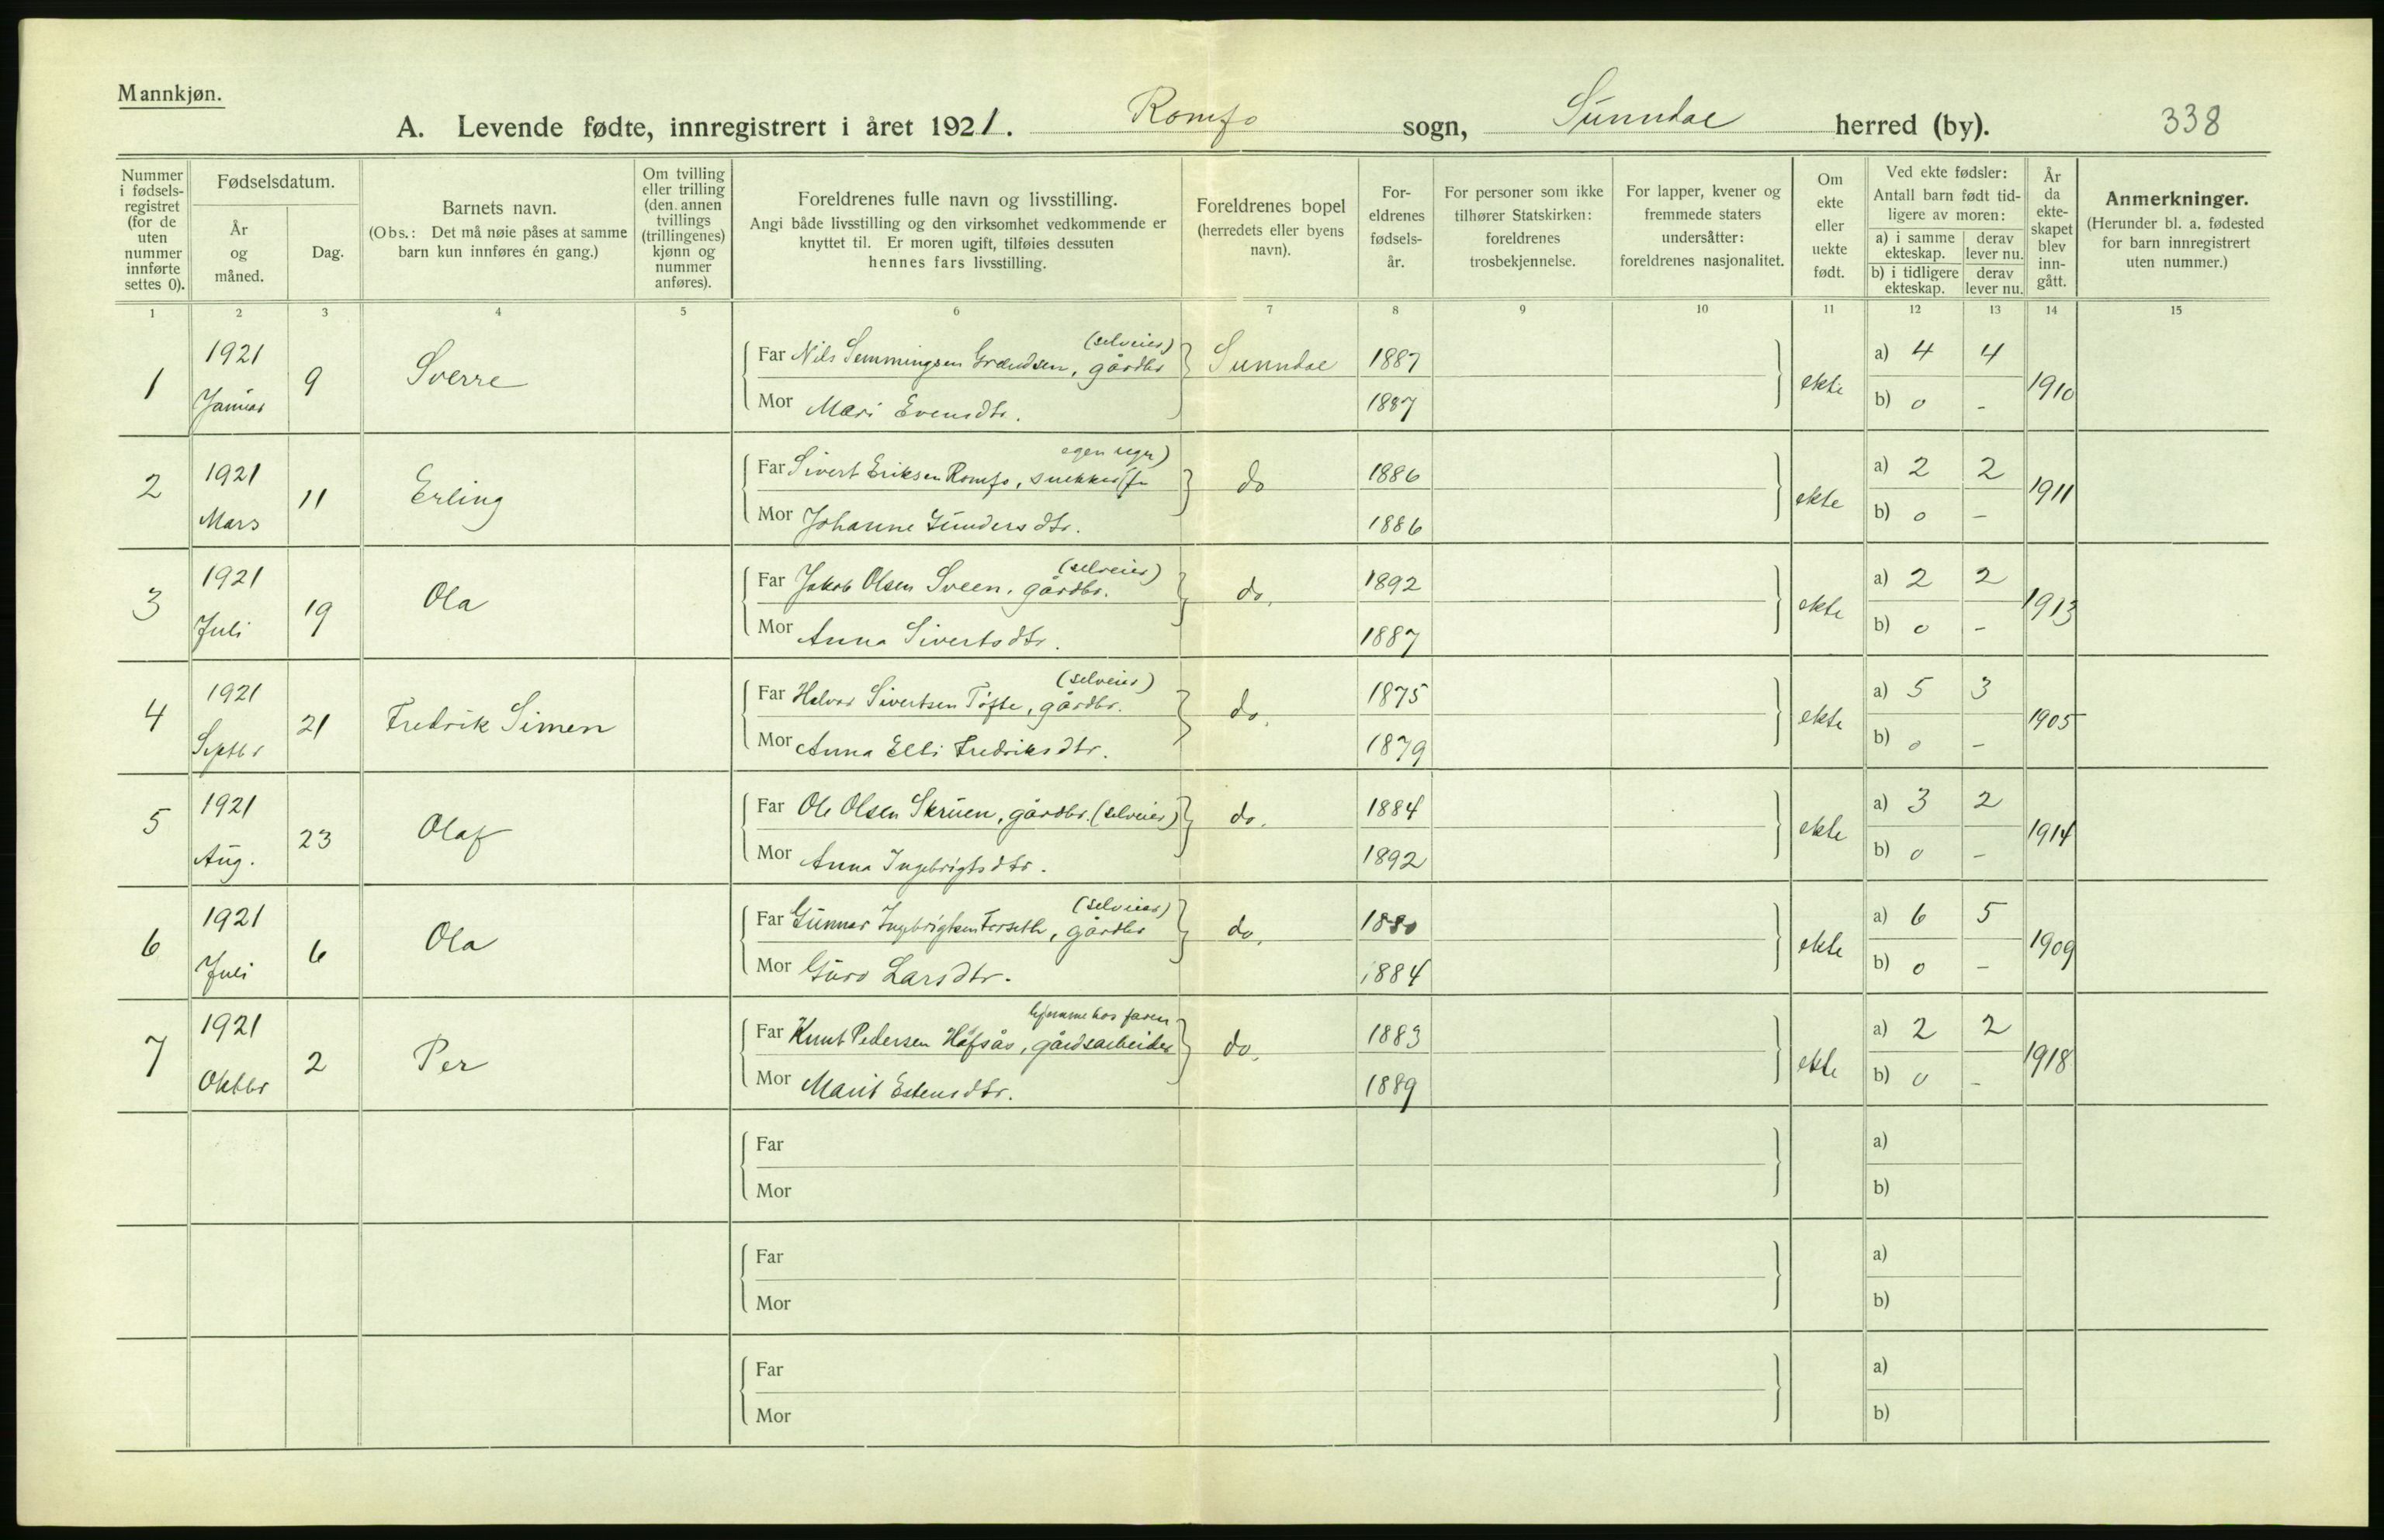 Mannkjøn.
A. Levende fødte, innregistrert i året 1921. Romfo sogn, Sunndal herred (by). 338
Nummer i fødsels-registret (for de uten nummer innførte settes 0).
Fødselsdatum.
År og måned.
Dag.
Barnets navn.
(Obs.: Det må nøie påses at samme barn kun innføres én gang.)
Om tvilling eller trilling (den annen tvillings (trillingenes) kjønn og nummer anføres).
Foreldrenes fulle navn og livsstilling.
Angi både livsstilling og den virksomhet vedkommende er knyttet til. Er moren ugift, tilføies dessuten hennes fars livsstilling.
Foreldrenes bopel (herredets eller byens navn).
For-eldrenes fødsels-år.
For personer som ikke tilhører Statskirken: foreldrenes trosbekjennelse.
For lapper, kvener og fremmede staters undersåtter: foreldrenes nasjonalitet.
Om ekte eller uekte født.
Ved ekte fødsler:
Antall barn født tid-ligere av moren:
a) i samme ekteskap.
derav lever nu.
b) i tidligere ekteskap.
derav lever nu.
År da ekte-skapet blev inn-gått.
Anmerkninger.
(Herunder bl. a. fødested for barn innregistrert uten nummer.)
1 2 3 4 5 6 7 8 9 10 11 12 13 14 15
1 1921 Januar 9 Sverre
(selveier)
Far Nils Semmingsen Grændsen, gårdbr Sunndal 1887 ekte a) 4 4 1910
Mor Mari Evensdtr. 1887 b) 0 -
2 1921 Mars 11 Erling
egen regn)
Far Sivert Eriksen Romfo, snekker (f. do 1886 ekte a) 2 2 1911
Mor Johanne Gundersdtr. 1886 b) 0 -
3 1921 Juli 19 Ola
(selveier)
Far Jakob Olsen Sveen, gårdbr. do. 1892 ekte a) 2 2 1913
Mor Anna Sivertsdtr. 1887 b) 0 -
4 1921 Septbr 21 Fredrik Simen
(selveier)
Far Halvor Sivertsen Tøfte, gårdbr. do. 1875 ekte a) 5 3 1905
Mor Anna Elli Fredriksdtr. 1879 b) 0 -
5 1921 Aug. 23 Olaf
Far Ole Olsen Skruen, gårdbr. (selveier) do. 1884 ekte a) 3 2 1914
Mor Anna Ingebrigtsdtr. 1892 b) 0 -
6 1921 Juli 6 Ola
(selveier)
Far Gunnar Ingebrigtsen Forseth, gårdbr do. 1880 ekte a) 6 5 1909
Mor Guro Larsdtr. 1884 b) 0 -
7 1921 Oktbr 2 Per
hjemme hos faren
Far Knut Pedersen Hafsås, gårdsarbeider do. 1883 ekte a) 2 2 1918
Mor Marit Estensdtr. 1889 b) 0 -
Far a)
Mor b)
Far a)
Mor b)
Far a)
Mor b)